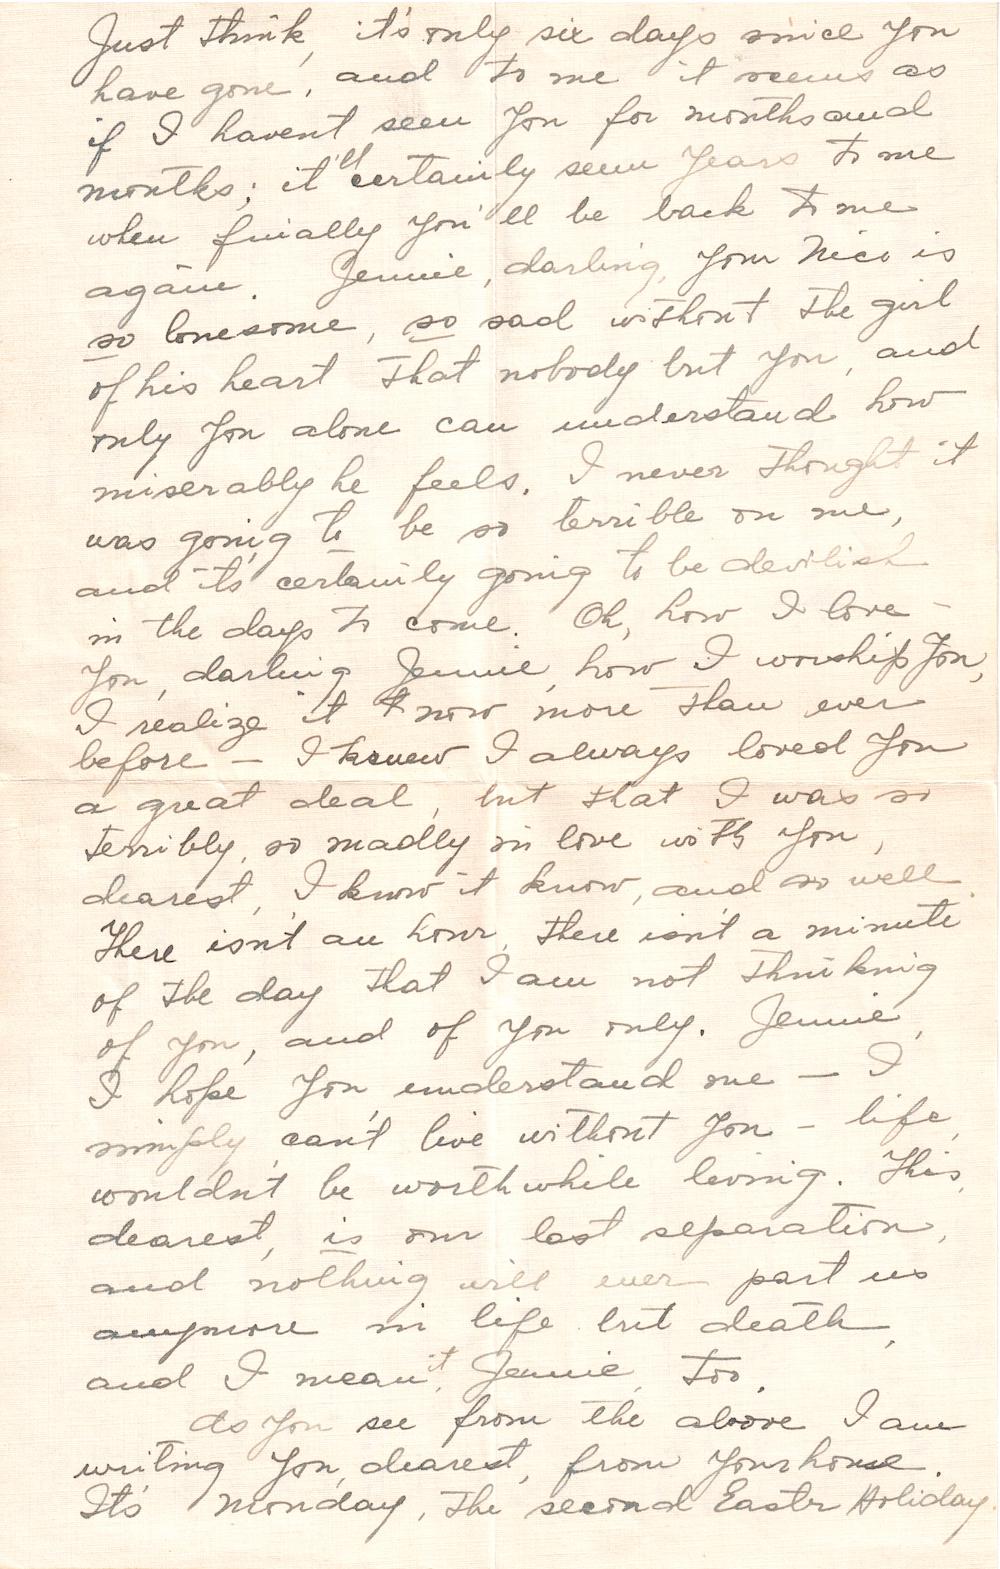 Just think, it's only six days since you
have gone, and to me it seems as
if I haven't seen you for months and
months; it'll certainly seem years to me
when finally you'll be back to me
again. Jennie, darling, your Nico is
so lonesome, so sad without the girl
of his heart that nobody but you, and
only you alone can understand how
miserably he feels. I never thought it
was going to be so terrible on me,
and it's certainly going to be devilish
in the days to come. Oh, how I love
you, darling Jennie, how I worship you,
I realize it now more than ever
before — I knew I always loved you
a great deal, but that I was so
terribly, so madly in love with you,
dearest, I know it know, and so well.
There isn't an hour, there isn't a minute
of the day that I am not thinking
of you, and of you only. Jennie,
I hope you understand me — I
simply can't live without you — life
wouldn't be worthwhile living. This,
dearest, is our last separation,
and nothing will ever part us
anymore in life but death,
and I mean it, Jennie, too.
As you see from the above I am
writing you, dearest, from your home.
It's Monday, the second Easter Holiday.